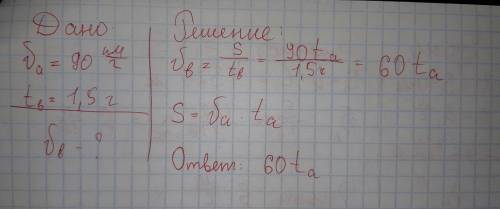 Дано
υa = 90 км/ч
tв = 1,5 ч
υв - ?
Решение:
υв = S/tв = 90ta/1,5ч = 60ta
S = υa · ta
Ответ: 60ta